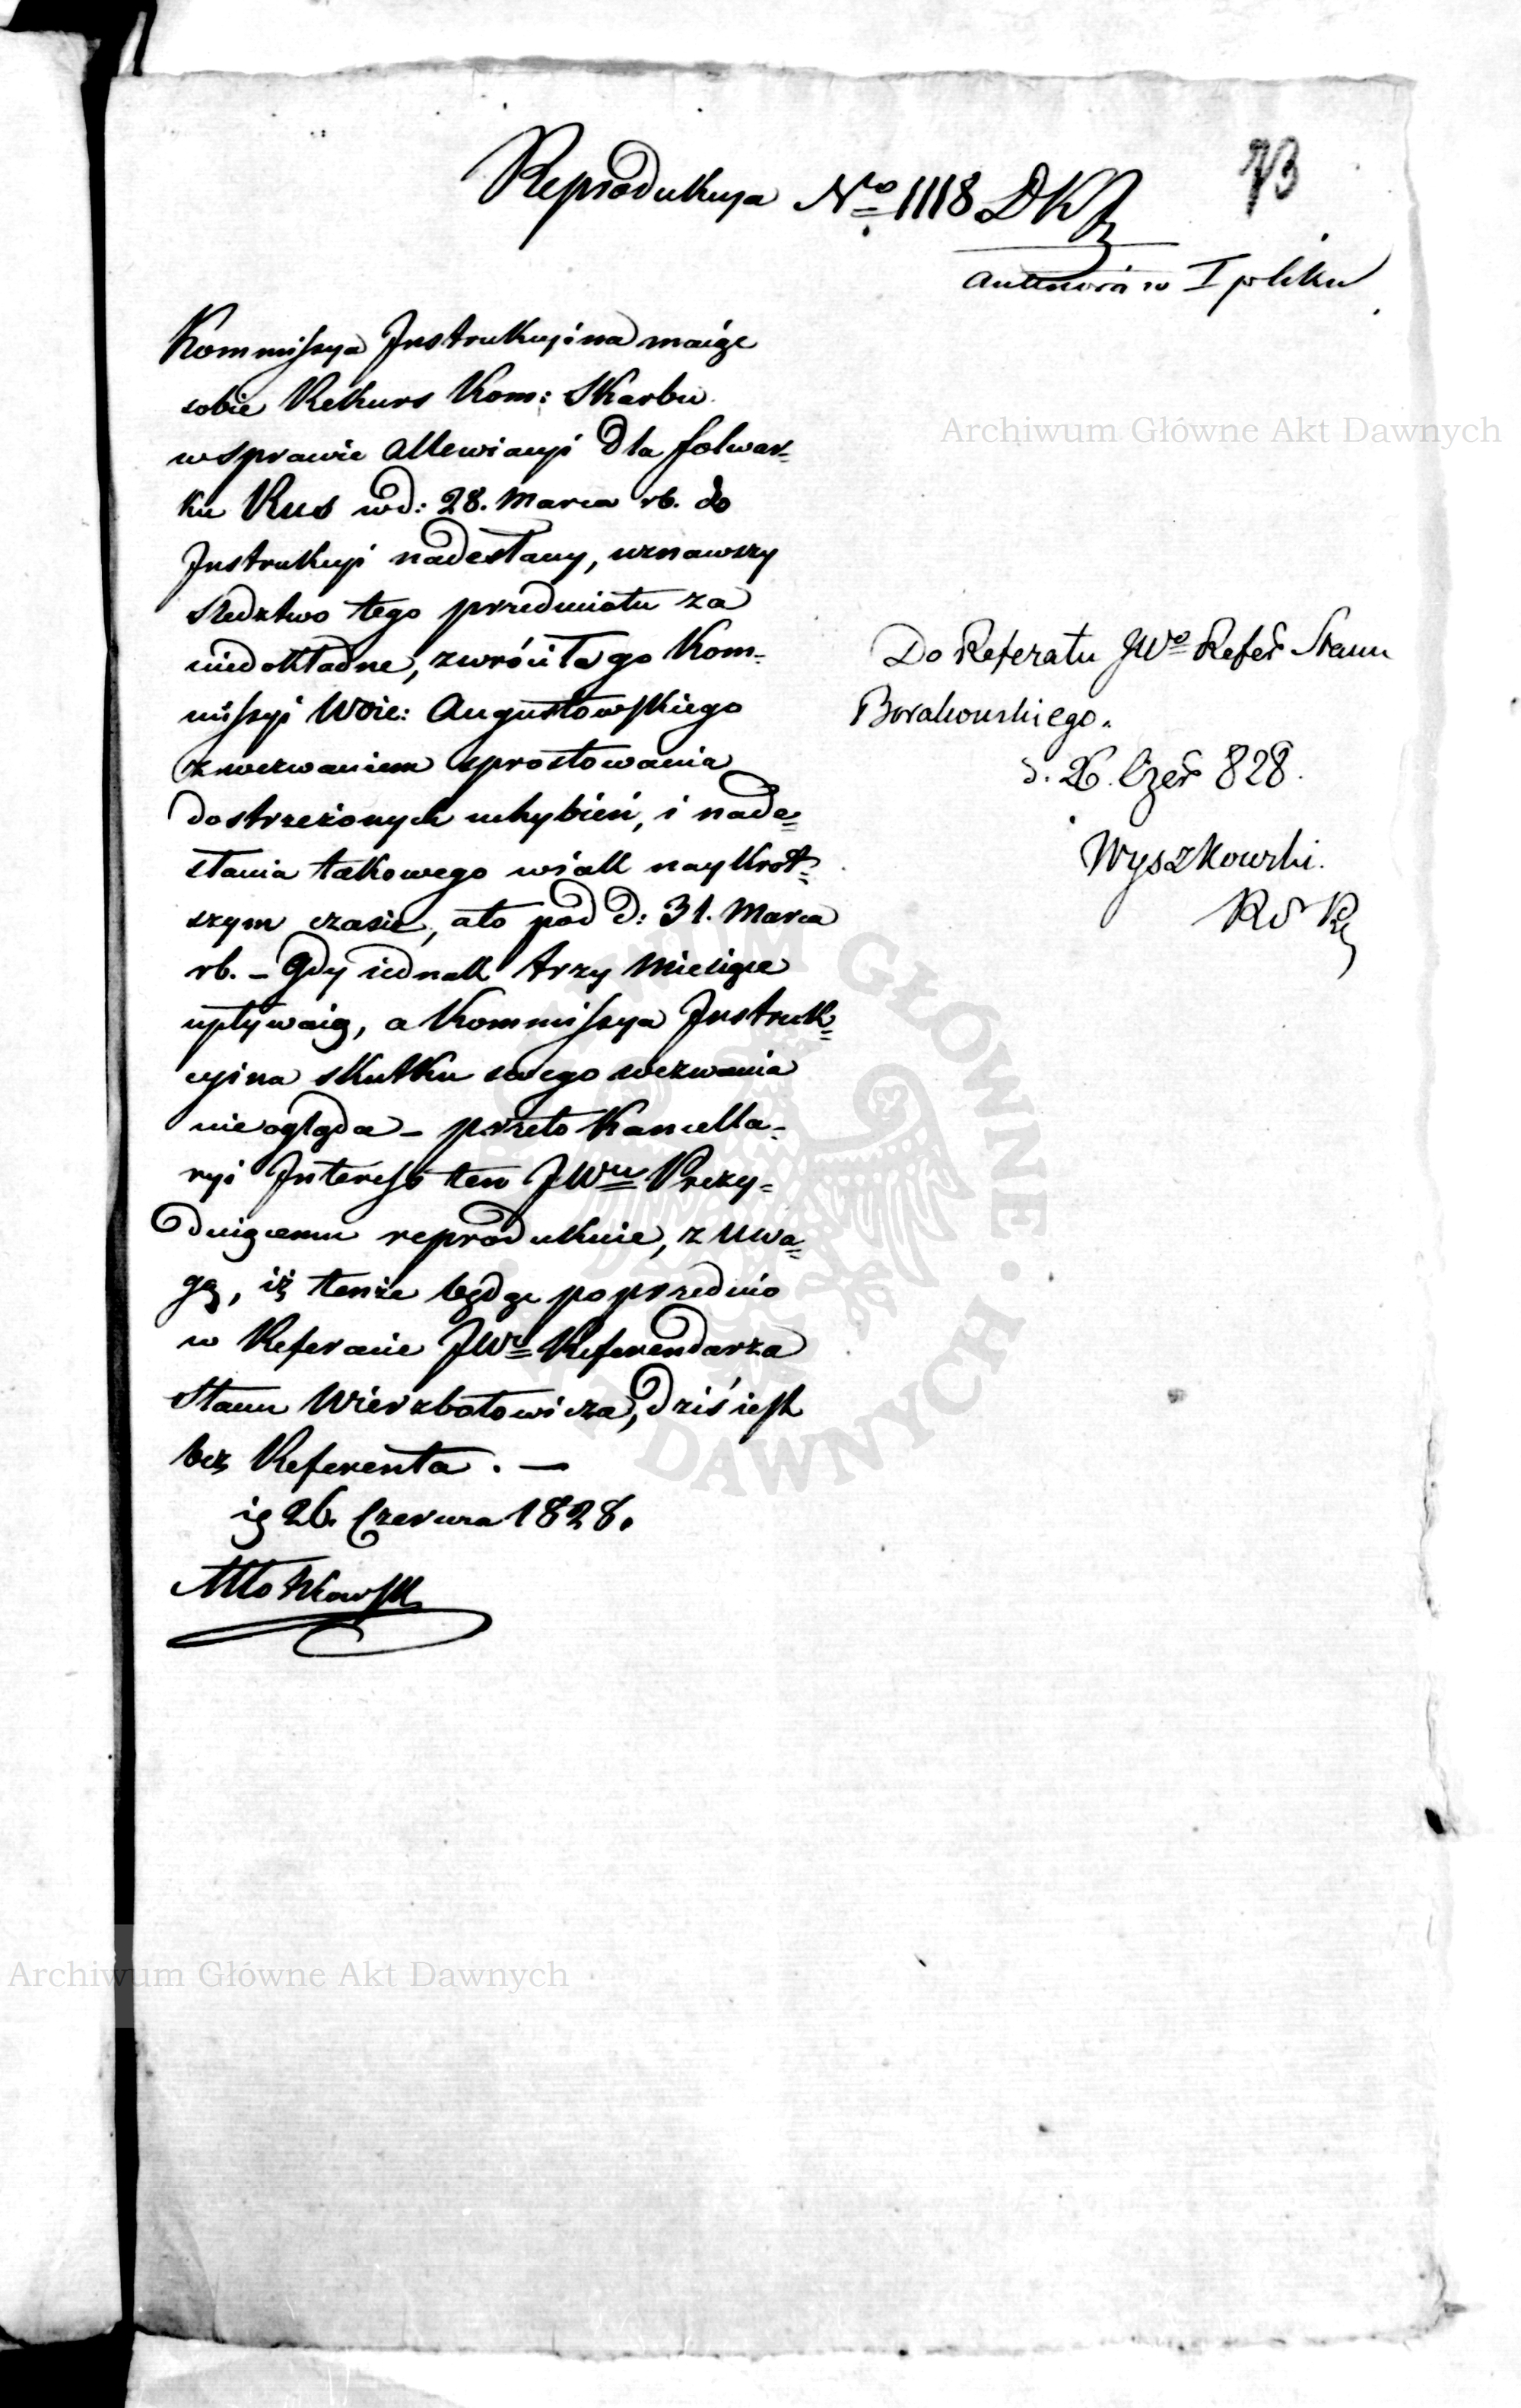 73
Reprodukcya No 1118 DKP
w I pliku
Kommissya Instrukcyina maiąc
sobie Rekurs Kom: Skarbu
w sprawie allewiacyi dla folwar=
ku Kus w d: 28. Marca rb. do
Instrukcyi nadesłany, uznawszy
śledztwo tego przedmiotu za
niedokładne, zwróciła go Kom=
missyi Woie: Augustowskiego
z wezwaniem sprostowania
dostrzeżonych uchybień, i nade=
słania takowego w iak naykrót=
szym czasie, a to pod d: 31. Marca
rb. – Gdy iednak trzy Miesiące
upływaią, a Kommissya Instruk=
cyina skutku swego wezwania
nie ogląda – przeto Kancella=
ryi Interess ten JWu Prezy=
duiącemu reprodukuie, z uwa=
gą, iż tenże będąc poprzednio
w Referacie JWo Referendarza
Stanu Wierzbołowicza, dziś iest
bez Referenta. —
26. Czerwca 1828.
Do Referatu JWo Refer Stanu
Borakowskiego.
d. 26. Czer 828.
Wyszkowski.
Archiwum Główne Akt Dawnych
Archiwum Główne Akt Dawnych
ARCHIWUM GŁÓWNE AKT DAWNYCH